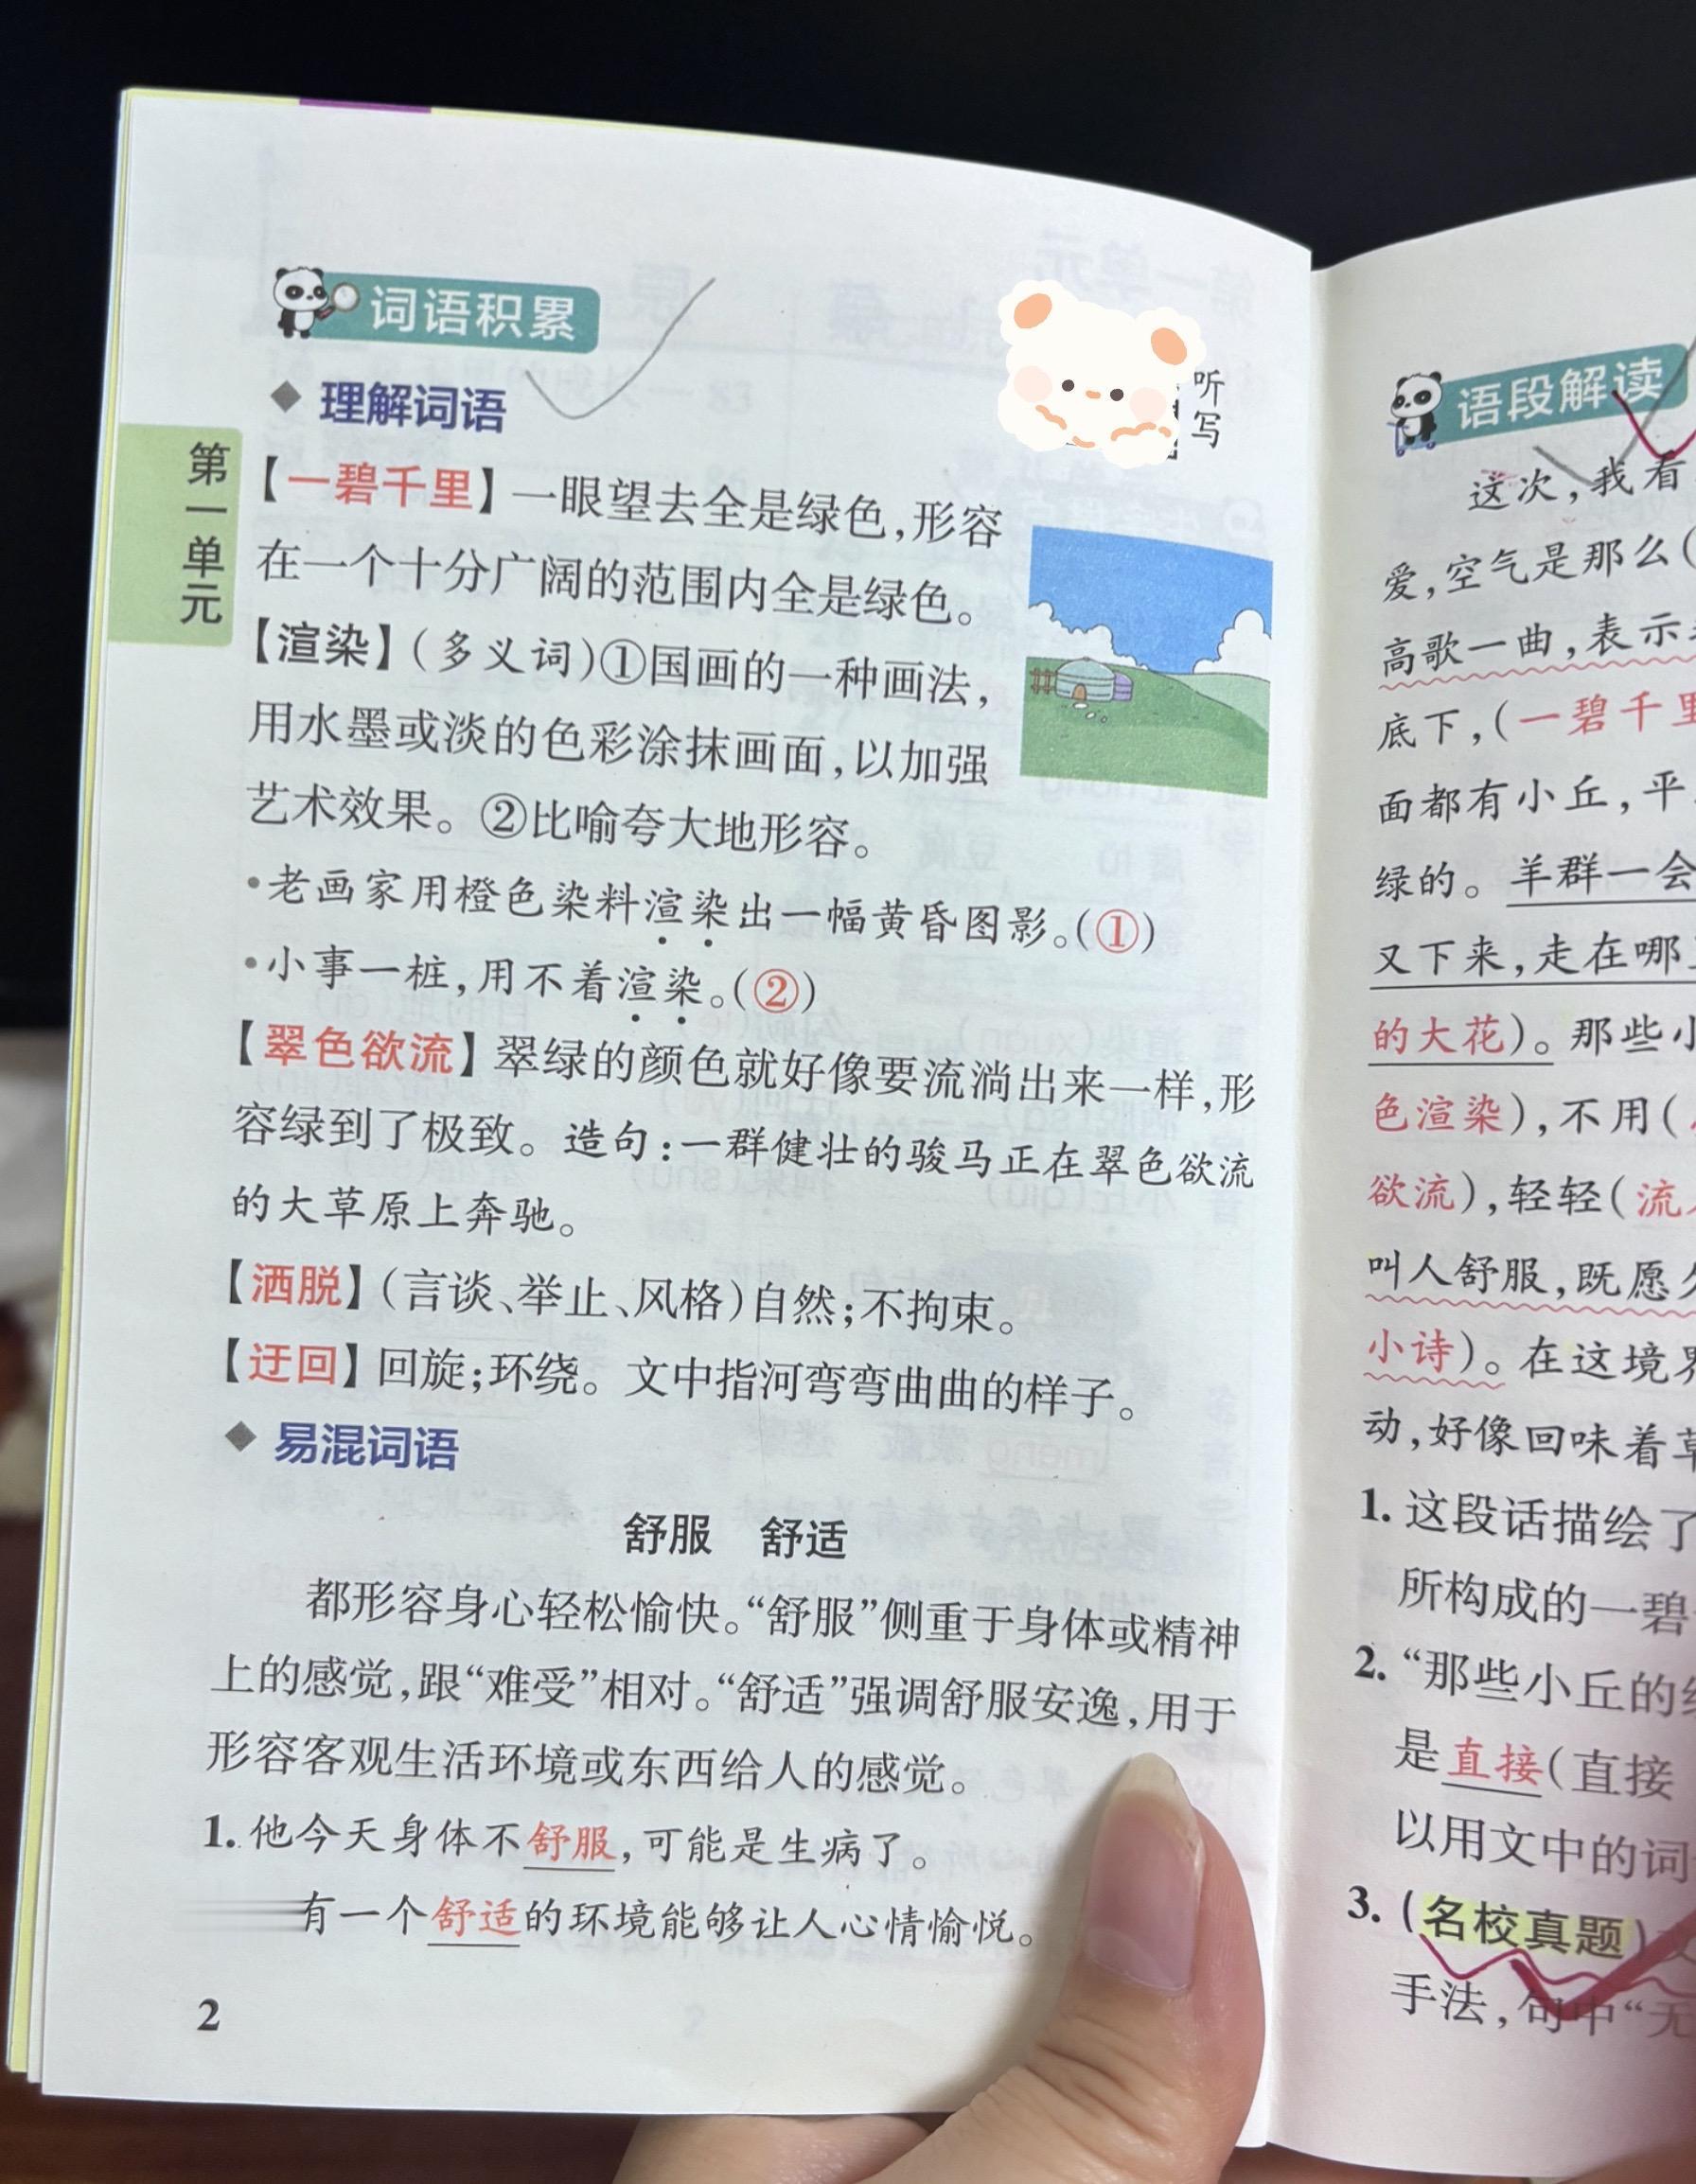 词语积累
听写
理解词语
第一单元
【一碧千里】一眼望去全是绿色,形容
在一个十分广阔的范围内全是绿色。
【渲染】(多义词)①国画的一种画法,
用水墨或淡的色彩涂抹画面,以加强
艺术效果。②比喻夸大地形容。
•老画家用橙色染料渲染出一幅黄昏图影。(①)
•小事一桩,用不着渲染。(②)
【翠色欲流】翠绿的颜色就好像要流淌出来一样,形
容绿到了极致。造句:一群健壮的骏马正在翠色欲流
的大草原上奔驰。
【洒脱】(言谈、举止、风格)自然;不拘束。
【迂回】回旋;环绕。文中指河弯弯曲曲的样子。
易混词语
舒服 舒适
都形容身心轻松愉快。“舒服”侧重于身体或精神
上的感觉,跟“难受”相对。“舒适”强调舒服安逸,用于
形容客观生活环境或东西给人的感觉。
1. 他今天身体不舒服,可能是生病了。
有一个舒适的环境能够让人心情愉悦。
2
语段解读
这次,我看
爱,空气是那么(
高歌一曲,表示
底下,(一碧千里
面都有小丘,平
绿的。羊群一会
又下来,走在哪
的大花)。那些小
色渲染),不用(
欲流),轻轻(流
叫人舒服,既愿久
小诗)。在这境界
动,好像回味着草
1. 这段话描绘了
所构成的一碧
2. “那些小丘的线
是直接(直接
以用文中的词
3. (名校真题)
手法,句中“无